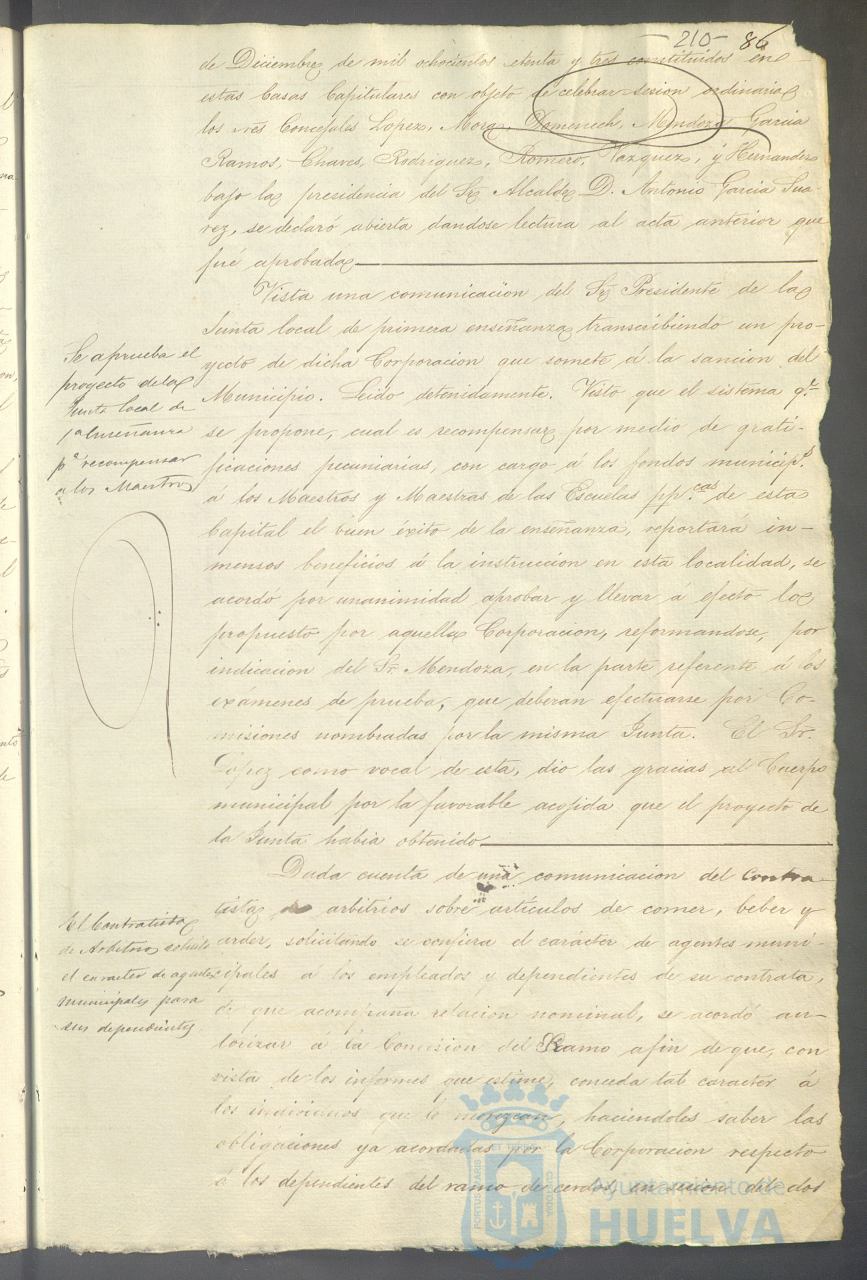 -210- 86
de Diciembre de mil ochocientos setenta y tres constituidos en
estas Casas Capitulares con objeto de celebrar sesion ordinaria
los Sres Concejales Lopez, Mora, Domenech, Mendoza, Garcia
Ramos, Chaves, Rodriguez, Romero, Vazquez, y Hernandez
bajo la presidencia del Sr Alcalde D. Antonio Garcia Sua-
rez, se declaró abierta dandose lectura al acta anterior que
fué aprobada
Vista una comunicacion del Sr Presidente de la
Junta local de primera enseñanza transcribiendo un pro-
yecto de dicha Corporacion que somete á la sancion del
Municipio. Leido detenidamente. Visto que el sistema qe
se propone, cual es recompensar por medio de grati-
ficaciones pecuniarias, con cargo á los fondos municips
á los Maestros y Maestras de las Escuelas pp.cas de esta
Capital el buen éxito de la enseñanza, reportará in-
mensos beneficios á la instruccion en esta localidad, se
acordó por unanimidad aprobar y llevar a efecto lo
propuesto por aquella Corporacion, reformandose, por
indicacion del Sr. Mendoza, en la parte referente á los
exámenes de prueba, que deberan efectuarse por Co-
misiones nombradas por la misma Junta. El Sr.
Lopez como vocal de esta, dio las gracias al Cuerpo
municipal por la favorable acojida que el proyecto de
la Junta habia obtenido
Dada cuenta de una comunicacion del Contra-
tista de arbitrios sobre articulos de comer, beber y
arder, solicitando se confiera el carácter de agentes muni-
cipales a los empleados y dependientes de su contrata,
de que acompaña relacion nominal, se acordó au-
torizar á la Comision del Ramo afin de que, con
vista de los informes que estime, conceda tal caracter á
los individuos que lo merezcan, haciendoles saber las
obligaciones ya acordadas por la Corporacion respecto
á los dependientes del ramo de cerdos, en sesion del dos
Se aprueba el
proyecto de la
Junta local de
1ª enseñanza
pª recompensar
a los Maestros
El Contratista
de Arbitrios solicita
el caracter de agentes
municipales para
sus dependientes
PORTUS MARIS ET TERRAE CUSTODIA
Ayuntamiento de
HUELVA